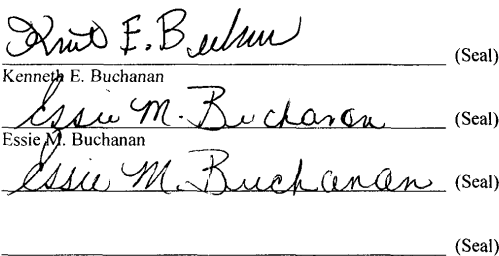 Kent E. Buchanan (Seal)
Kenneth E. Buchanan
Essie M. Buchanan (Seal)
Essie M. Buchanan
Essie M. Buchanan (Seal)
(Seal)